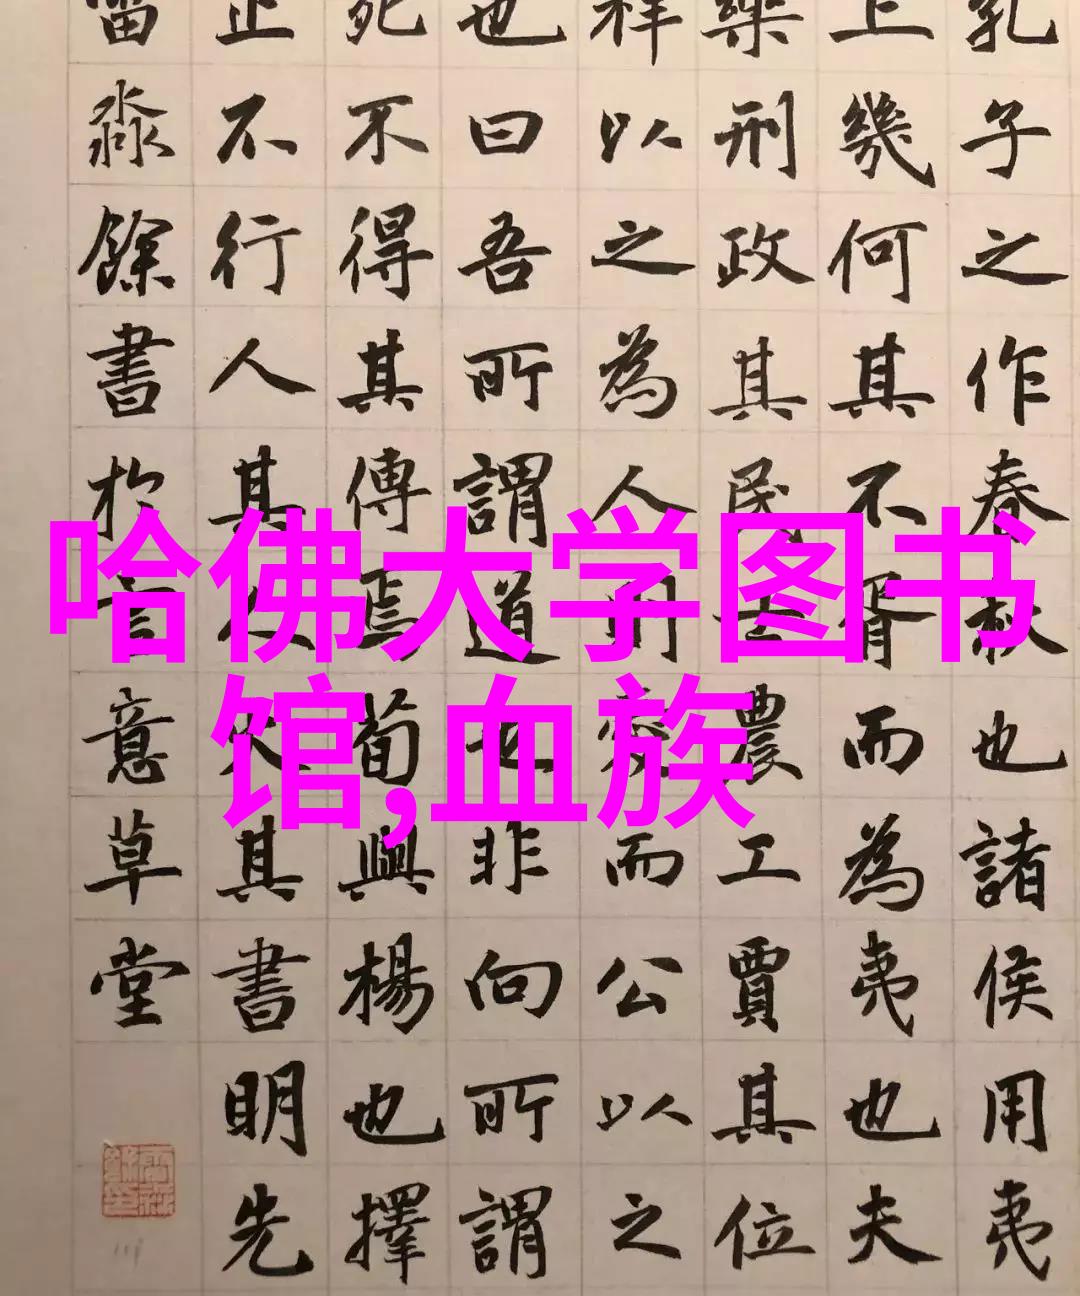 哈佛大学图书
馆,血族
孔子之作春秋也諸侯用夷
上幾何其不胥而為夷也夫
樂刑政其民士農工賈其位
祥以之為人則愛而公以之
也曰吾所謂道也非向所謂
死不得其傳焉荀與楊也擇
止不行人其人火其書明先
淼餘書於言意草堂